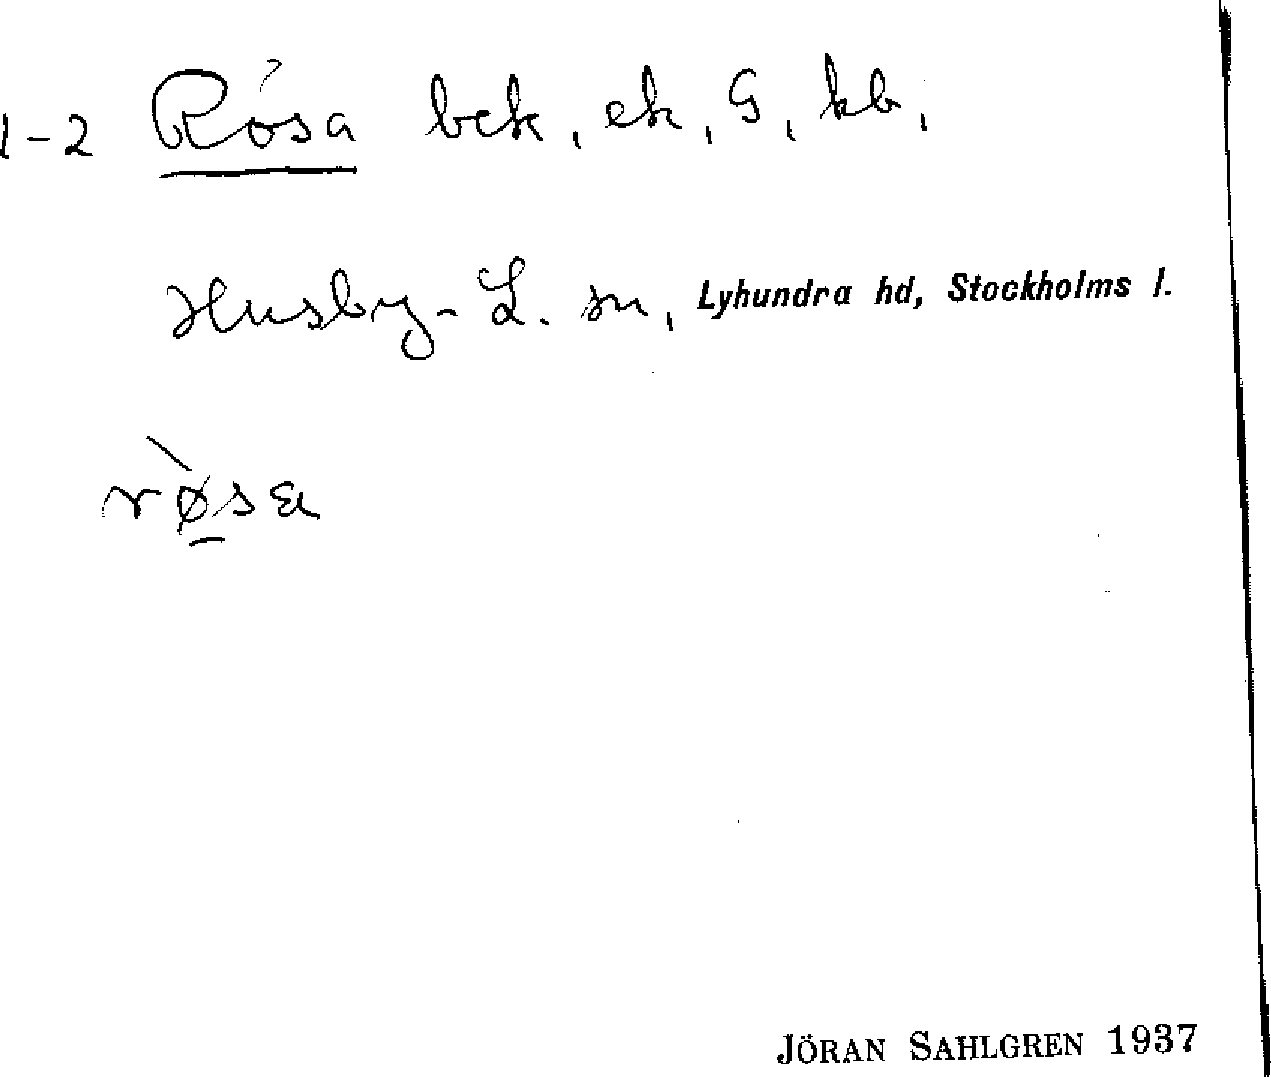 1-2 Rösa bek, ek, G, kb,
Husby-L. sn, Lyhundra hd, Stockholms l.
rø̀sa
JÖRAN SAHLGREN 1937